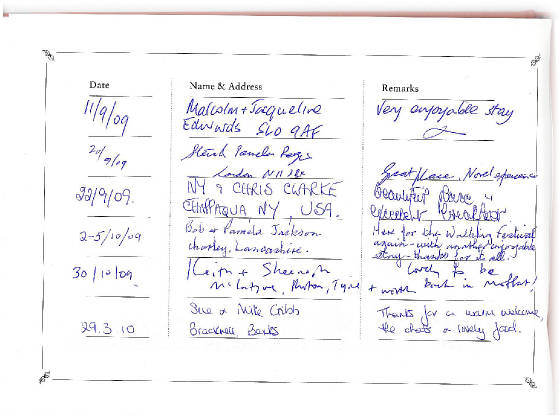 Date Name & Address Remarks
11/9/09 Malcolm + Jacqueline Very enjoyable stay
Edwards SL0 9AF
20/9/09
London N11 Great place, Novel experience
22/9/09. & CHRIS CLARKE Beautiful
CHAPPAQUA NY, USA. excellent Breakfast.
2-5/10/09 Bob & Pamela Jackson Here for the Walking Festival
Chorley, Lancashire. again - with another enjoyable
stay - thanks for it all.
30/10/09 Keith + Sheenagh Lovely to be
McIntyre, Ryton, Tyne + Wear back in Moffat!
Sue & Mike Cribb Thanks for a warm welcome,
29.3 10 Bracknell Berks the chats & lovely food.